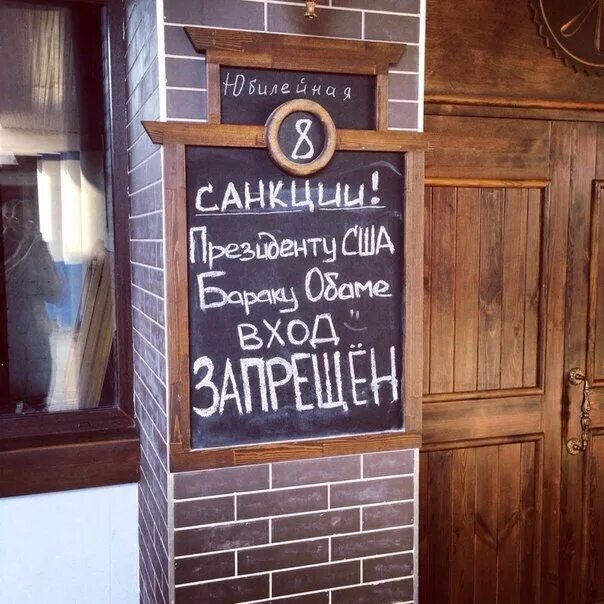 Юбилейная
8
САНКЦИИ!
Президенту США
Бараку Обаме
ВХОД
ЗАПРЕЩЁН